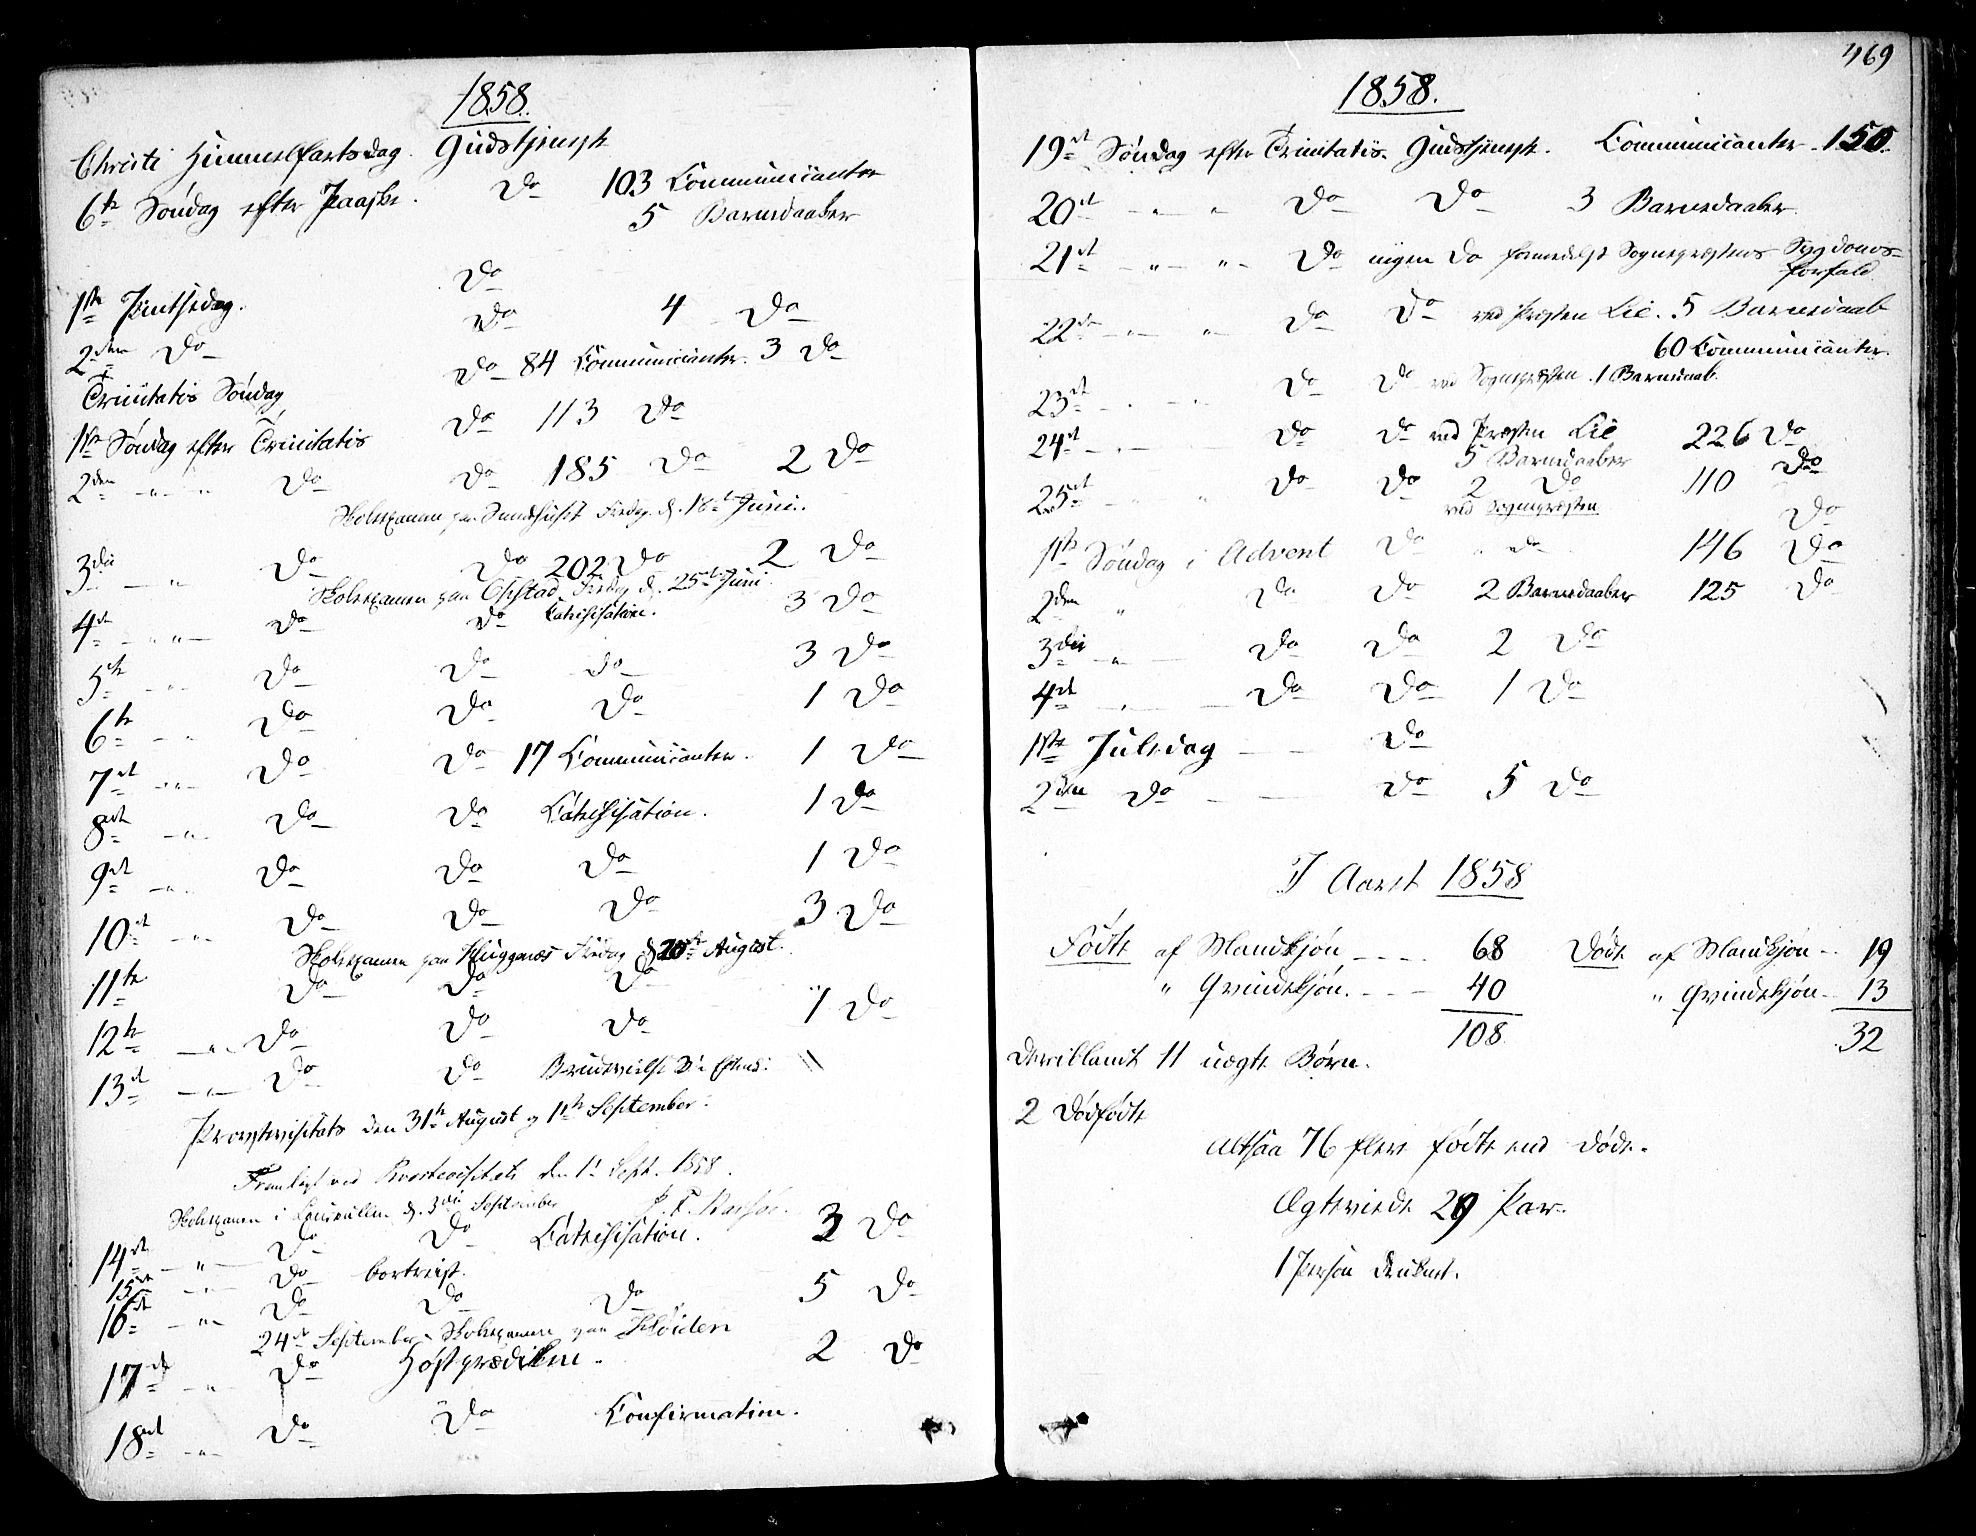 1858.
Christi Himmelfartsdag. Gudstjeneste
6te Søndag efter Paaske. Do 103 Communicanter
5 Barnedaaber
1ste Pintsedag. Do
2den Do Do 4 Do
Trinitatis Søndag Do 84 Communicanter. 3 Do
1ste Søndag efter Trinitatis Do 113 Do
2den - " - " Do Do 185 Do 2 Do
Skoleexamen paa Fredag d. 18de Juni.
3die - " Do Do 202 Do 2 Do
Skoleexamen paa Fredag d. 25de Juni.
4de - " - " - Do Do Catechisation. 3 Do
5te - " - Do Do Do 3 Do
6te - " Do Do Do 1 Do
7de - " - Do Do 17 Communicanter. 1 Do
8de - " - Do Do Catechisation. 1 Do
9de - " - Do Do Do 1 Do
10de - " - Do Do Do 3 Do
Skoleexamen paa Fredag d. 20de August.
11te Do Do Do
12te - " - Do Do Do 1 Do
13de - " - Do Do "
Provstevisitats den 31te August og 1ste September.
Fremlagt ved Provstevisitats den 1. Sept. 1858.
Skoleexamen i d. 3die September
14de - " - Do Do Catechisation. 3 Do
15de - " - Do bortreist.
16de - " - Do Do Do 5 Do
24de September Skoleexamen paa
17de - " - Do Høstprædiken. 2 Do
18de - " - Do Do Confirmation.
469
1858.
19de Søndag efter Trinitatis. Gudstjeneste. Communicanter. 150.
20de - " - " Do Do 3 Barnedaaber.
21de - " - " - Do ingen Do formedelst Sognepræstens Sygdoms-
forfald
22de - " - " Do Do ved Præsten Lie. 5 Barnedaab
60 Communicanter.
23de - " - " Do Do ved Sognepræsten. 1 Barnedaab.
24de - " - Do Do ved Præsten Lie 226 Do
5 Barnedaaber
25de - " - " Do Do 2 Do 110 Do
ved Sognepræsten
Do
1ste Søndag i Advent Do " Do 146 Do
2den " Do Do 2 Barnedaaber 125 Do
3die - " - Do Do 2 Do
4de - " - Do Do 1 Do
1ste Juledag - - Do
2den Do - - Do 5 Do
I Aaret 1858
Fødte af Mandkjøn - - - - 68 Døde af Mandkjøn - - 19
" Qvindekjøn. - - - 40 " Qvindekjøn - 13
108. 32
Deriblandt 11 uægte Børn.
2 Dødfødte
altsaa 76 flere fødte end døde.
Ægteviede 29 Par.
1 Person